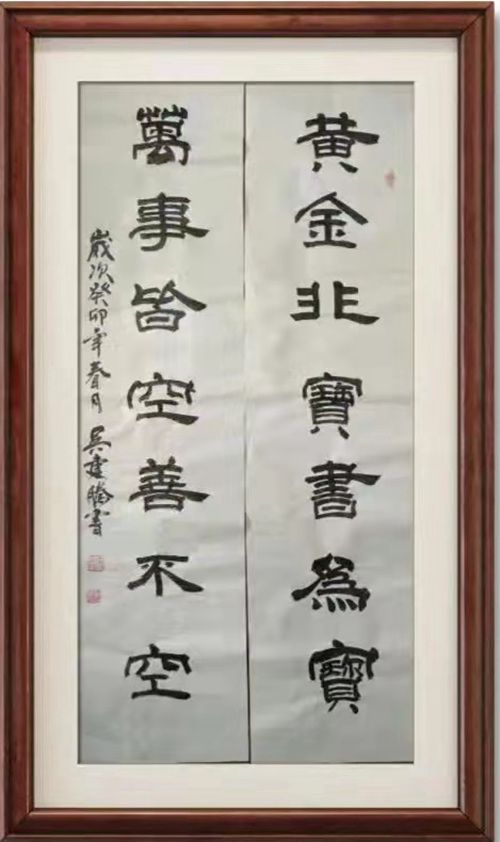 黃金非寶書為寶
萬事皆空善不空
歲次癸卯年春月 吳建腾書